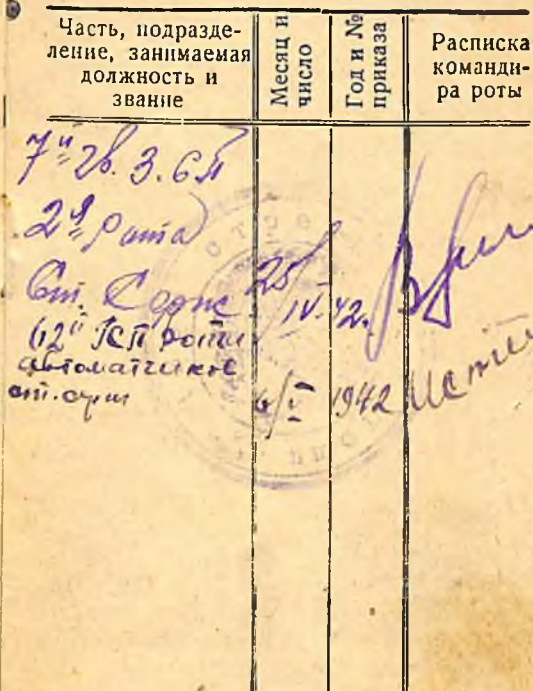 Часть, подразде-
ление, занимаемая
должность и
звание
Месяц и
число
Год и №
приказа
Расписка
команди-
ра роты
7й гв. З.
2я рота
Ст. Серж. 25/IV-42.
роты
автоматчиков
ст. 6/V 1942